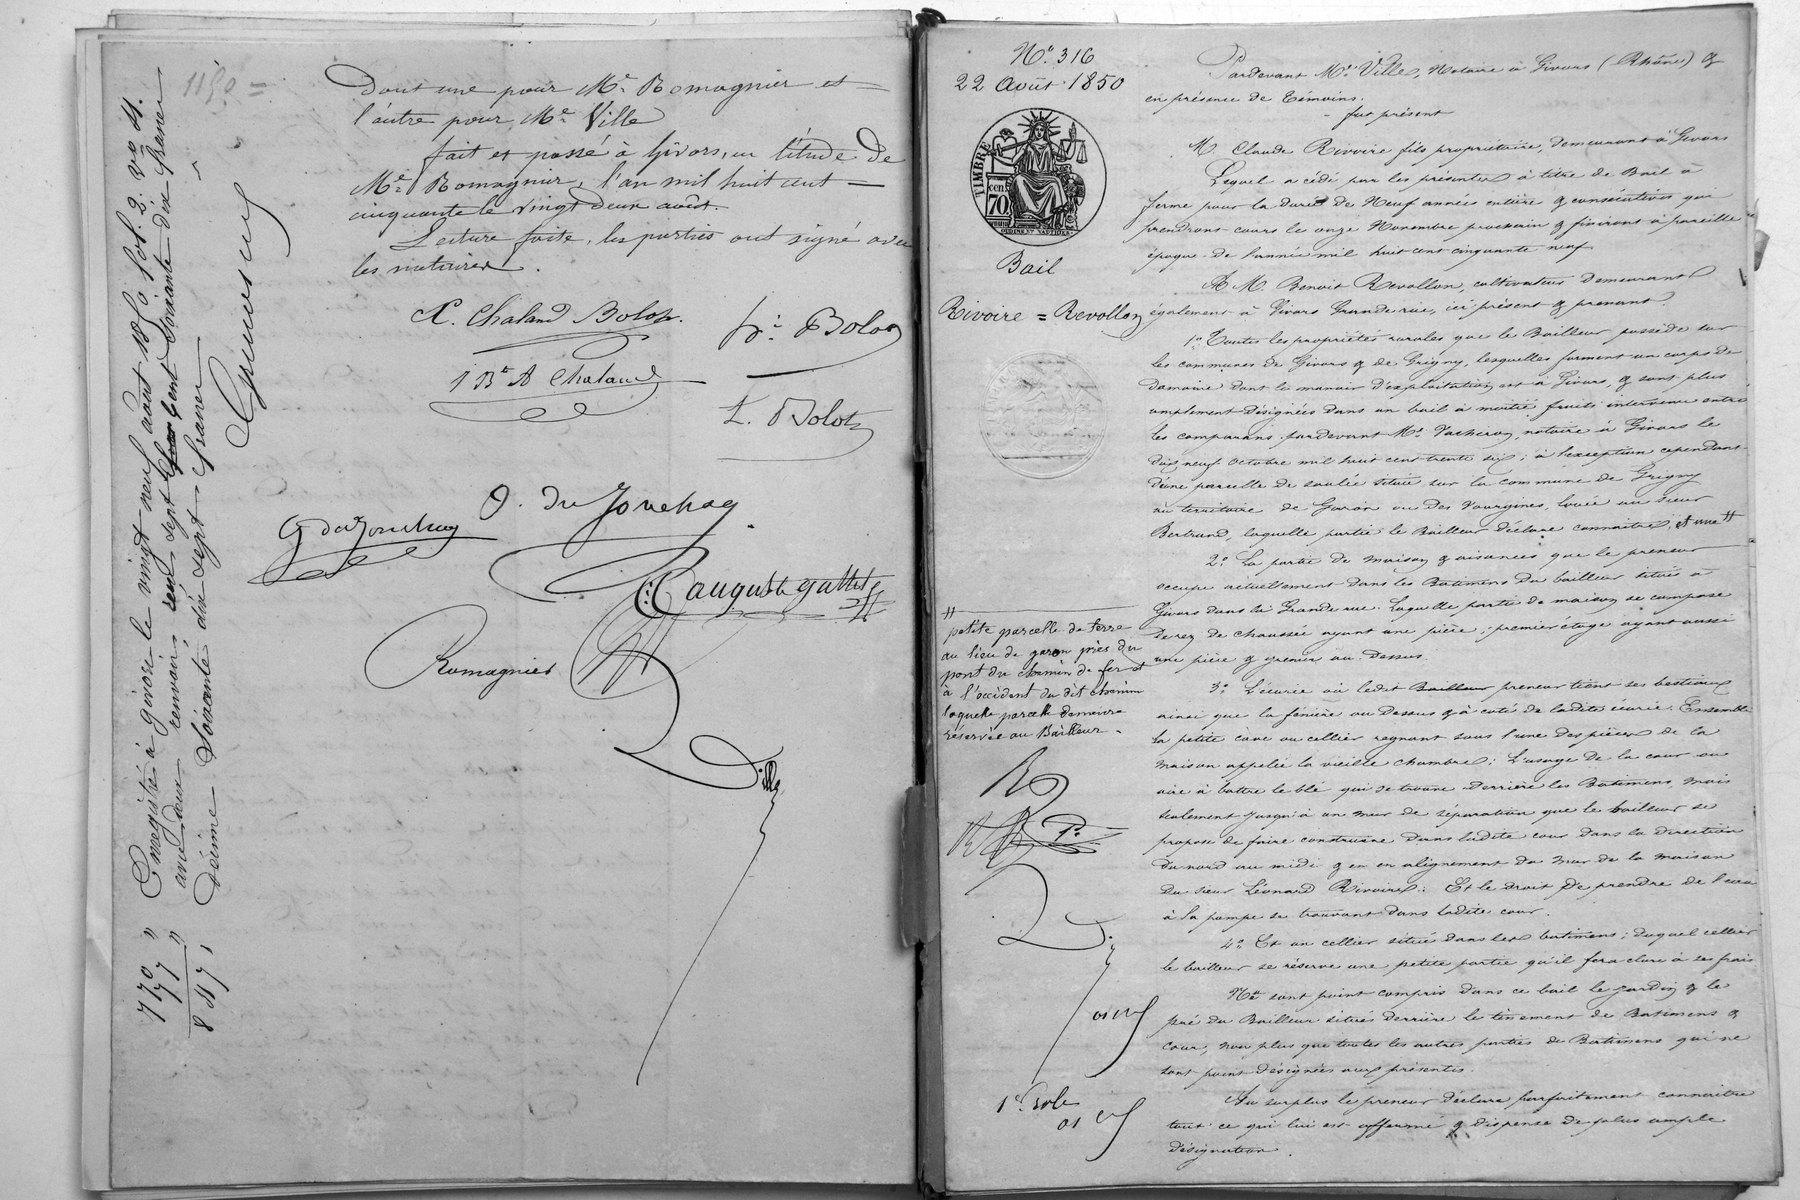 1150 =
Dont une pour Me Romagnier et
l'autre pour Me Ville
fait et passé à Givors, en l'étude de
Me Romagnier, l'an mil huit cent
cinquante le vingt deux août.
Lecture faite, les parties ont signé avec
les notaires.
C. Chaland Bolot.
fs Bolot
J Bte A Chaland
L. Bolot
O. du Jonchay
G du Jonchay
auguste gattet
Romagnier
Ville
Enregistré à givors le vingt neuf août 1850 fol. 2. vo 4.
avec deux renvois, reçu sept cent soixante dix francs
Décime soixante dix sept francs
770 "
77 "
847 "
No. 316
22 Août 1850
TIMBRE
70
Bail
Rivoire = Revollon
Pardevant Me Ville, Notaire à Givors (Rhône) &
en présence de témoins.
fut présent
M. Claude Rivoire fils propriétaire, demeurant à Givors
Lequel a cédé par les présentes à titre de Bail à
ferme pour la durée de Neuf années entières & consécutives qui
prendront cours le onze Novembre prochain & finiront à pareille
époque de l'année mil huit cent cinquante neuf
A M. Benoit Revollon, cultivateur demeurant
également à Givors Grande rue, ici présent & prenant.
1o Toutes les propriétés rurales que le Bailleur possède sur
les communes de Givors & de Grigny, lesquelles forment un corps de
domaine dont le manoir d'exploitation est à Givors, & sont plus
amplement désignées dans un bail à moitié fruits intervenu entre
les comparans pardevant Me Vacheron, notaire à Givors le
dix neuf octobre mil huit cent trente six; à l'exception cependant
d'une parcelle de saulée située sur la commune de Grigny
au territoire de Garon ou des Vourgines, louée au sieur
Bertrand, laquelle partie le Bailleur déclare connaitre, et une #
2o La partie de maison & aisances que le preneur
occupe actuellement dans les Batimens du bailleur situés à
Givors dans la Grande rue. Laquelle partie de maison se compose
de rez de chaussée ayant une pièce; premier étage ayant aussi
une pièce & grenier au dessus.
3o L'écurie où ledit Bailleur preneur tient ses bestiaux
ainsi que la fénière au dessus & à coté de ladite écurie. Ensemble
la petite cave ou cellier regnant sous l'une des pièces de la
maison appelée la vieille chambre: L'usage de la cour ou
aire à battre le blé qui se trouve derrière les Batimens, mais
seulement jusqu'à un mur de séparation que le bailleur se
propose de faire construire dans ladite cour dans la direction
du nord au midi & en en alignement du mur de la maison
du sieur Léonard Rivoire: Et le droit de prendre de l'eau
à la pompe se trouvant dans ladite cour.
4o Et un cellier situé dans les batimens; duquel cellier
le bailleur se réserve une petite partie qu'il fera clore à ses frais
Ne sont point compris dans ce bail le jardin & le
pré du Bailleur situés derrière le tènement de Batimens &
cour, non plus que toutes les autres parties de Batimens qui ne
sont point désignées aux présentes.
Au surplus le preneur déclare parfaitement connaitre
tout ce qui lui est affermé & dispense de plus ample
désignation.
#
petite parcelle de terre
au lieu de garon près du
pont du chemin de fer et
à l'occident du dit chemin
laquelle parcelle demeure
réservée au Bailleur.
1er role